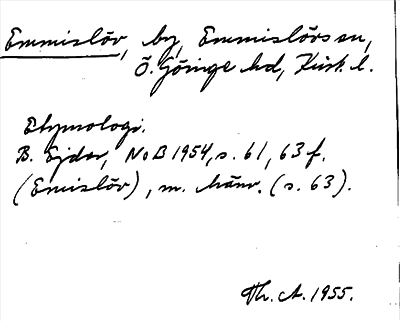 Emmislöv, by, Emmislövs sn,
Ö. Göinge hd, Krist. l.
Etymologi.
B. Ejder, NoB 1954, s. 61, 63 f.
(Emislöv), m. hänv. (s. 63).
Th. A. 1955.